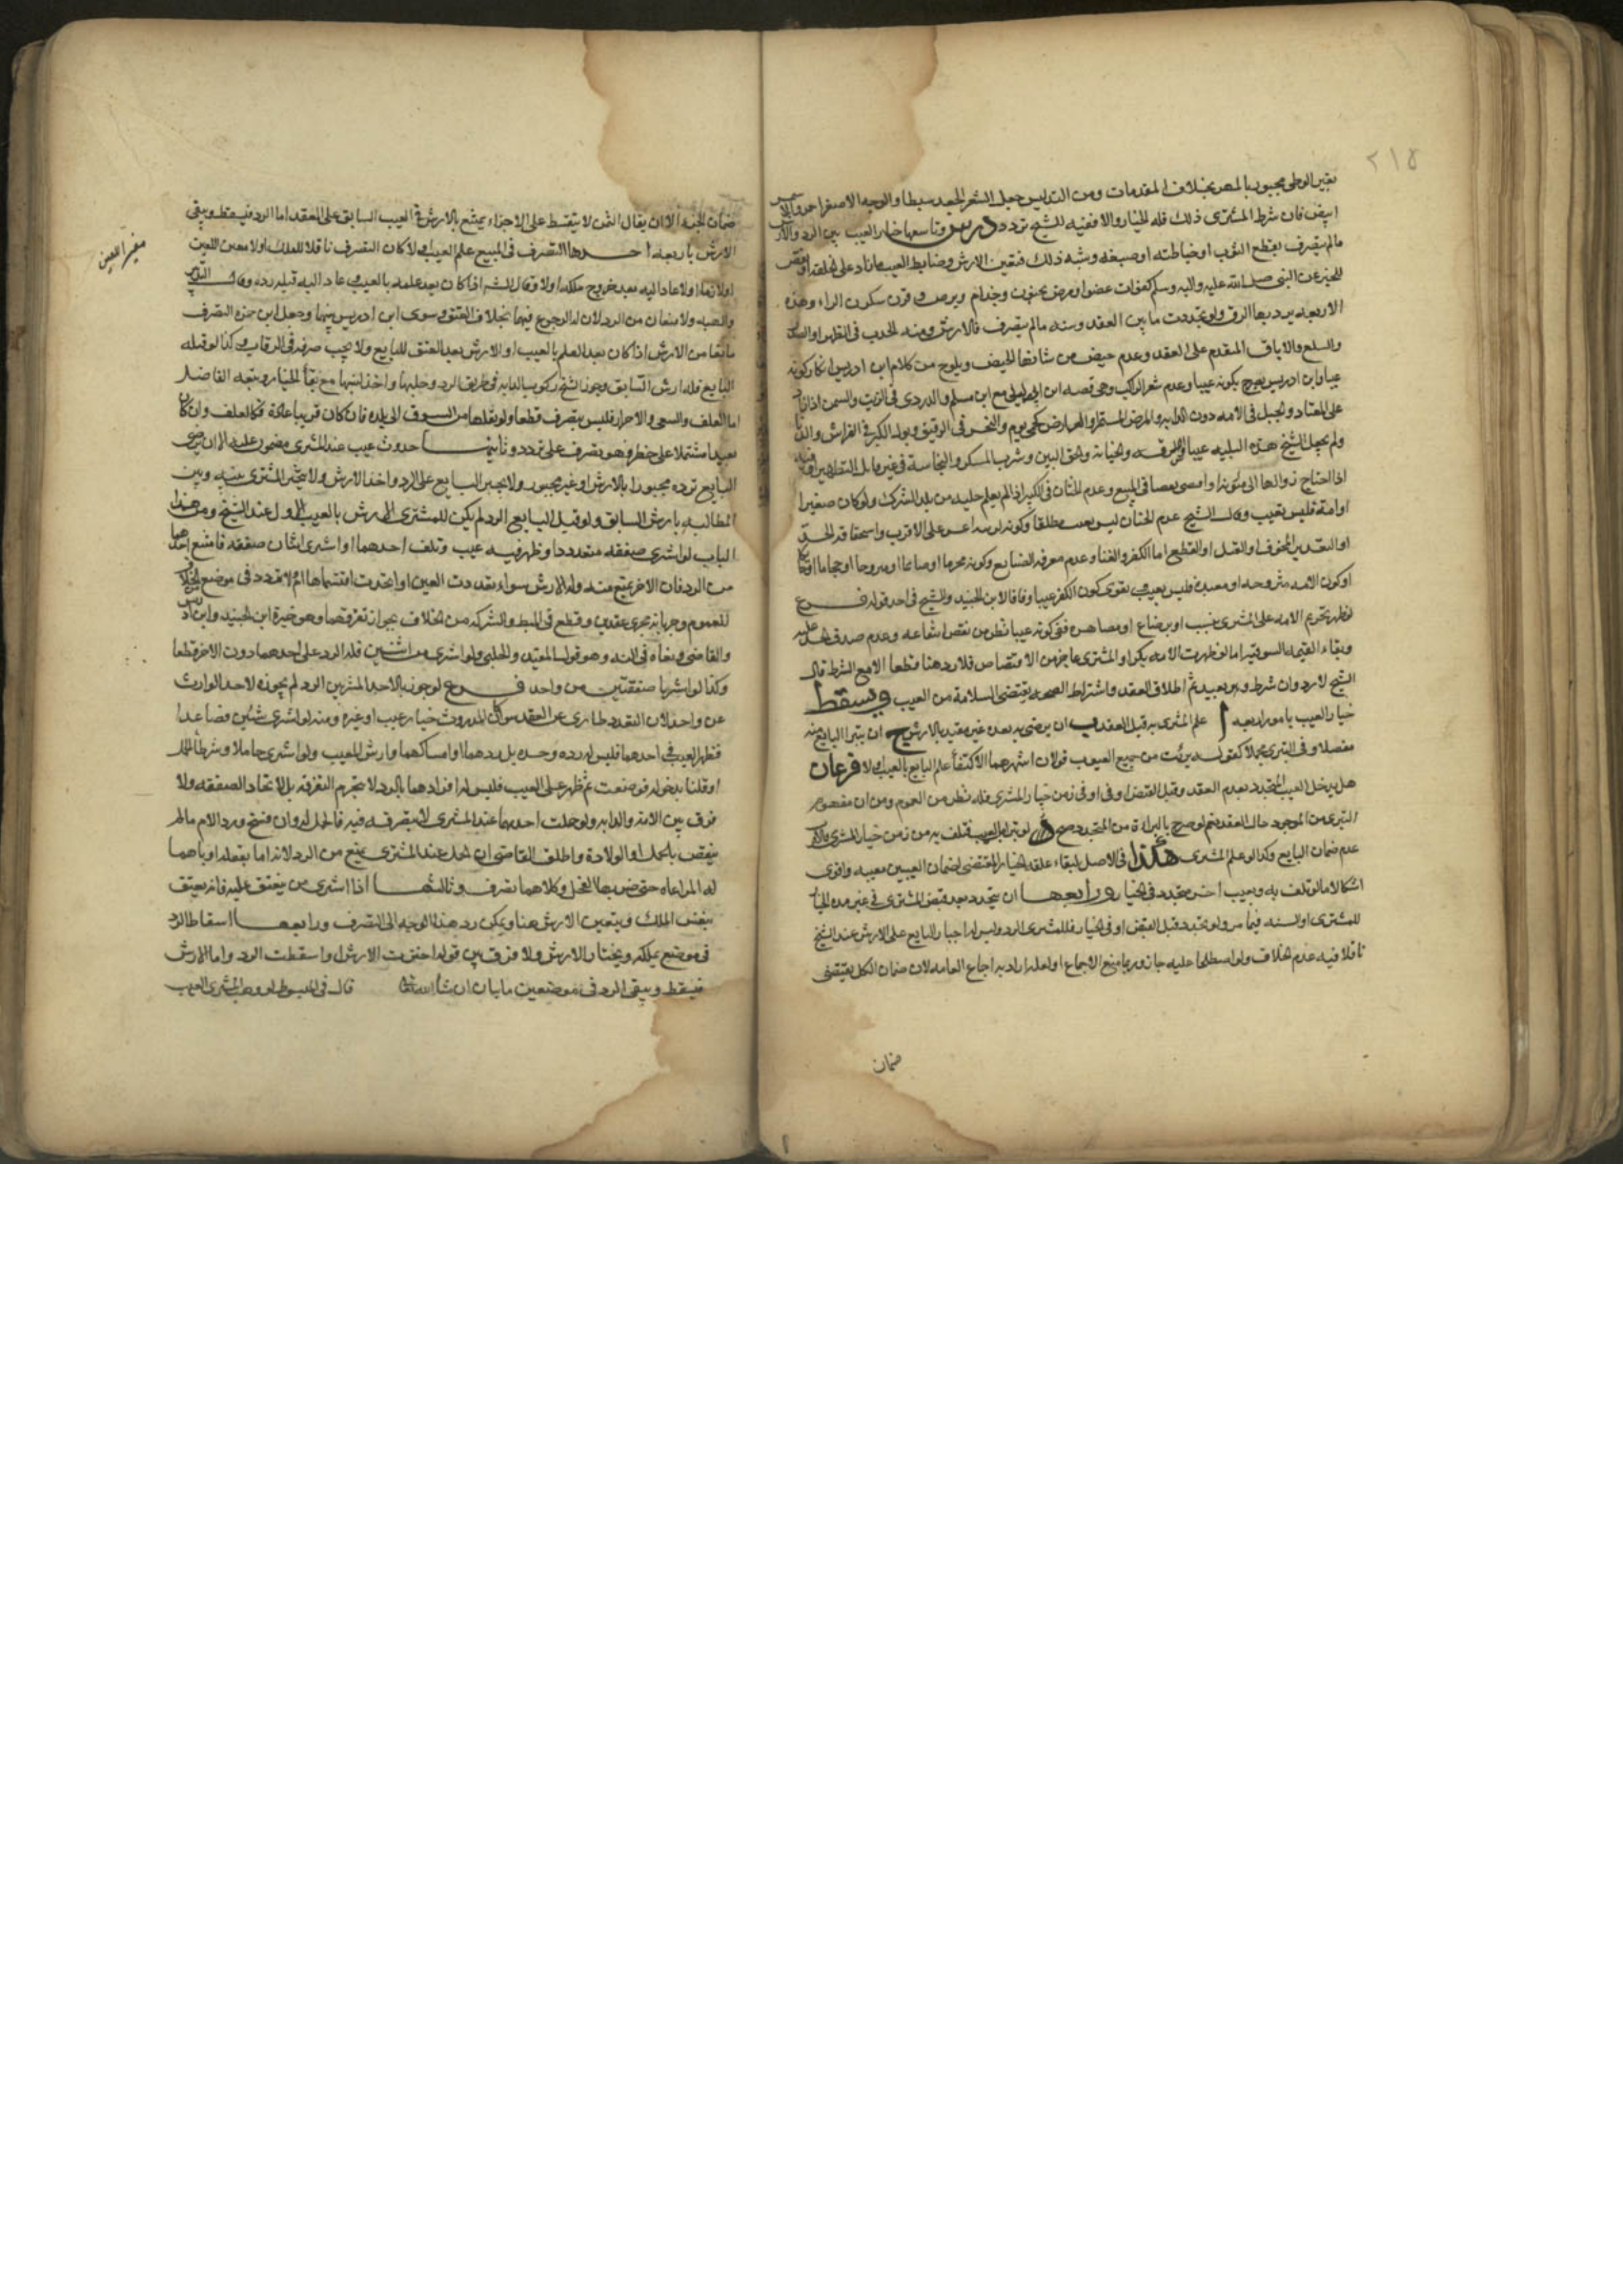 ٢١٥
بغير الوطى مجبور بالمصر بخلاف المقدمات ومن التدليس جعل الشعر الجعد سبطا والوجه الاصفر احمر
ابيض فان شرط المشترى ذلك فله الخيار والا ففيه للشيخ تردد درس وتاسعها خيار العيب بين الرد والارش
مالم يتصرف بقطع الثوب او خياطته او صبغه وشبه ذلك فتعين الارش وضابط العيب ما زاد على الخلقة او نقص
للخبر عن النبى صلى الله عليه واله وسلم كفوات عضو او مرض كجنون وجذام وبرص وقرن سكون الراء وهذه
الاربعه يرد بها الرق ولو تجددت ما بين العقد وسنه مالم يتصرف فالارش ومنه الحدب فى الظهر او الصدر
والسلع والاباق المتقدم على العقد وعدم حيض من شانها الحيض ويلوح من كلام ابن ادريس انكار كونه
عيبا وابن ادريس يصرح بكونه عيبا وعدم شعر الركب وهى قصه ابن ابى ليلى مع ابن مسلم والدردى فى الزيت والسمن اذا زاد
على المعتاد والحبل فى الامه دون الدابه والمرض المستمر والعارض كحمى يوم والبخر فى الرقيق وبول الكبير فى الفراش والزنا
ولم يجعل الشيخ هذه الثلثه عيبا والسرقه والخيانه والحمق البين وشرب المسكر والنجاسة فى غير قابل التطهير او قابله
اذا احتاج زوالها الى مئونه او امضى نقصا فى المبيع وعدم الختان فى الكبير اذا لم يعلم جلبه من بلد الشرك ولو كان صغيرا
او امة فليس بعيب وقال الشيخ عدم الختان ليس بعيب مطلقا وكونه اعسر على الاقرب واستحقاقه الحد
او التعذير المخوف او القتل او القطع اما الكفر والغنا وعدم معرفه الصنايع وكونه محرما او صائما او مزوجا او حجاما او حائكا
او كون الامه مزوجه او معتدة فليس بعيب بقوى كون الكفر عيبا وفاقا لابن الجنيد والشيخ فى احد قوليه فرع
لو ظهر تحريم الامه على المشترى بنسب او رضاع او مصاهره ففى كونه عيبا نظر من نقص انتفاعه وعدم صدق الحد عليه
وبقاء القيمه السوقيه اما لو ظهرت الامه بكرا والمشترى عاجز عن الاقتضاض فلا رد هنا قطعا الا مع الشرط قال
الشيخ لا رد وان شرط وهو بعيد ثم اطلاق العقد واشتراط الصحه يقتضى السلامة من العيب ويسقط
خيار العيب بامور اربعه أ علم المشترى به قبل العقد ب ان يرضى به بعده غير مقيد بالارش ج ان يتبرا البايع منه
مفصلا وفى التبرى مجملا كقوله برئت من جميع العيوب قولان اشهرهما الاكتفأ علم البايع بالعيب او لا فرعان
هل يدخل العيب المتجدد بعد العقد وقبل القبض او فى زمن خيار المشترى فيه نظر من العموم ومن ان مفهومه
التبرى من الموجود حال العقد نعم لو صرح بالبراة من المتجدد صح
عدم ضمان البايع وكذا لو علم المشترى هكذا فى الاصل لبقاء علقه الخيار المقتضى لضمان العيبين معيبه واقوى
اشكالا ما لو تلف به وبعيب اخر متجدد فى الخيار ورابعها ان يتجدد بعد قبض المشترى فى غير مده الخيار
للمشترى او السنه فيما مر ولو تجدد قبل القبض او فى الخيار فللمشترى الرد وليس له اجبار البايع على الارش عند الشيخ
ناقلا فيه عدم الخلاف ولو اصطلحا عليه جاز وربما منع الاجماع او لعله اراد به اجماع العامه لان ضمان الكل يقتضى
ضمان
ضمان الجزء الا ان يقال الثمن لا يتقسط على الاجزاء ويمنع بالارش فى العيب السابق على العقد اما الرد فيسقط ويبقى
الارش باربعه احدها التصرف فى المبيع علم العيب او لا كان التصرف ناقلا للملك او لا مغير العين
او لازما او لا عاد اليه بعد خروج ملكه او لا وقال الشيخ اذا كان بعد علمه بالعيب وعاد اليه قبل رده وقال التدبير
والهبه لا يمنعان من الرد لان له الرجوع فيهما بخلاف العتق وسوى ابن ادريس بينها وجعل ابن حمزه التصرف
مانعا من الارش اذا كان بعد العلم بالعيب او الارش بعد العتق للبايع ولا يجب صرفه فى الرقاب وكذا لو قتله
البايع فله ارش السابق وجوز الشيخ ركوب الدابه فى طريق الرد وحلبها واخذ لبنها مع بقأ الخيار وتبعه الفاضل
اما العلف والسقى والاحراز فليس بتصرف قطعا ولو نقلها من السوق الى بلده فان كان قريبا عادة فكالعلف وان كان
بعيدا مشتملا على خطر فهو تصرف على تردد وثانيها حدوث عيب عند المشترى مضمون عليه الا ان يرضى
البايع برده مجبورا بالارش او غير مجبور ولا يجبر البايع على الرد واخذ الارش ولا يتخير المشترى بينه وبين
المطالبه بارش السابق ولو قبل البايع الرد لم يكن للمشترى الارش بالعيب الاول عند الشيخ ومن هذا
الباب لو اشترى صفقه متعددا وظهر فيه عيب وتلف احدهما او اشترى اثنان صفقه فامتنع احدهما
من الرد فان الاخر يمنع منه وله الارش سواء تعددت العين او اتحدت اقتسماها ام لا
للعموم وجريانه مجرى عقدين وقطع فى المبسوط والشركه من الخلاف بجواز تفرقهما وهو خيرة ابن الجنيد وابن ادريس
والقاضى ونفاه فى النهايه وهو قول المفيد والحلبى ولو اشترى من اثنين فله الرد على احدهما دون الاخر قطعا
وكذا لو اشتريا صفقتين من واحد فرع لو جوزنا لاحد المشتريين الرد لم نجوزه لاحد الوارث
عن واحد لان التعدد طارى على العقد سواء كان الموروث خيار عيب او غيره ومنه لو اشترى شيئين فصاعدا
فظهر العيب فى احدهما فليس له رده وحده بل ردهما او امساكهما وارش المعيب ولو اشترى حاملا وشرط الحمل
او قلنا بدخوله فوضعت ثم ظهر على العيب فليس له افرادها بالرد لا لتحريم التفرقه بل لاتحاد الصفقه ولا
فرق بين الامه والدابه ولو حملت احديهما عند المشترى لا بتصرفه فيه فالحمل له وان فسخ ورد الام مالم
ينقص بالحمل او الولادة واطلق القاضى ان الحمل عند المشترى يمنع من الرد لانه اما بفعله او باهما
له المراعاه حتى ضربها الفحل وكلاهما تصرف وثالثها اذا اشترى من ينعتق عليه فانه يعتق
بنفس الملك ويتعين الارش هنا ويمكن رد هذا الوجه الى التصرف ورابعها اسقاط الرد
فى موضع يملكه ويختار الارش ولا فرق بين قوله اخترت الارش او اسقطت الرد واما الارش
فيسقط ويبقى الرد فى موضعين ما يان ان شأ الله تعالى قال فى المبسوط لو وجد المشترى العيب
مغير العين